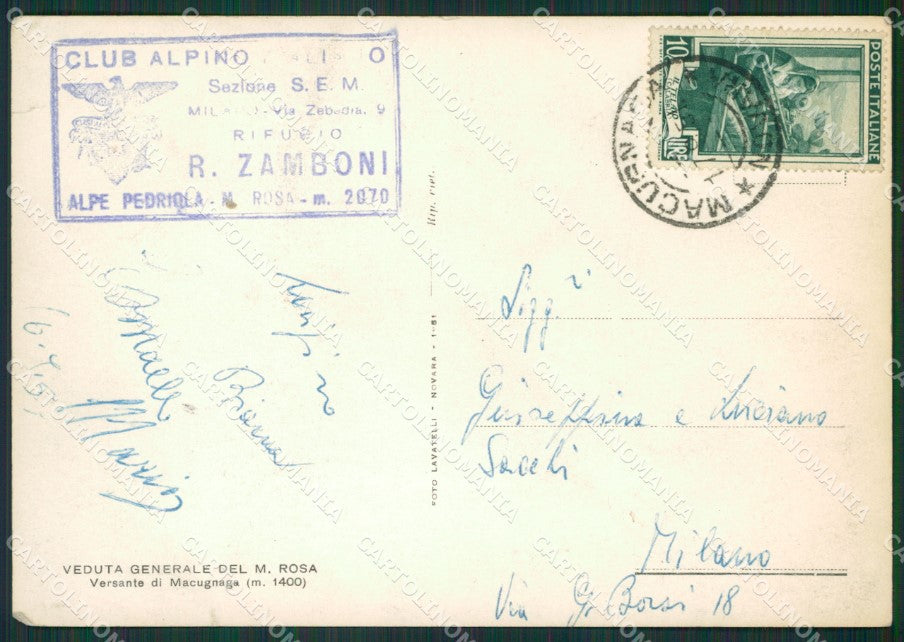 CLUB ALPINO ITALIANO
Sezione S.E.M.
MILANO - Via Zebedia, 9
RIFUGIO
R. ZAMBONI
ALPE PEDRIOLA - M. ROSA - m. 2070
10
LIRE
POSTE ITALIANE
MACUGNAGA
Rip. viet.
FOTO LAVATELLI - NOVARA - 1-51
Luigi
Bianca
Maria
Sigg.ri
Giuseppina e Luciano
Sacchi
Milano
Via G. Borsi 18
VEDUTA GENERALE DEL M. ROSA
Versante di Macugnaga (m. 1400)
CARTOLINOMANIA